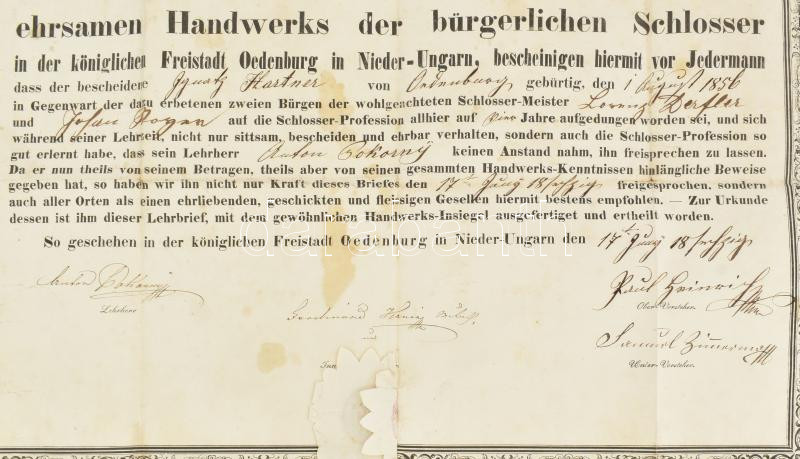 ehrsamen Handwerks der bürgerlichen Schlosser
in der königlichen Freistadt Oedenburg in Nieder-Ungarn, bescheinigen hiermit vor Jedermann
dass der bescheidene Ignatz Hartner von Oedenburg gebürtig, den 1 August 1856
in Gegenwart der dazu erbetenen zweien Bürgen der wohlgeachteten Schlosser-Meister Lorenz Derfler
und Johan auf die Schlosser-Profession allhier auf Vier Jahre aufgedungen worden sei, und sich
während seiner Lehrzeit, nicht nur sittsam, bescheiden und ehrbar verhalten, sondern auch die Schlosser-Profession so
gut erlernt habe, das sein Lehrherr Anton Pokorny keinen Anstand nahm, ihn freisprechen zu lassen.
Da er nun theils von seinem Betragen, theils aber von seinen gesammten Handwerks-Kenntnissen hinlängliche Beweise
gegeben hat, so haben wir ihn nicht nur Kraft dieses Briefes den 17ten Juny 18sechzig freigesprochen, sondern
auch aller Orten als einen ehrliebenden, geschickten und fleissigen Gesellen hiermit bestens empfohlen. — Zur Urkunde
dessen ist ihm dieser Lehrbrief, mit dem gewöhnlichen Handwerks-Insiegel ausgefertiget und ertheilt worden.
So geschehen in der königlichen Freistadt Oedenburg in Nieder-Ungarn den 17t Juny 18sechzig
darabanth
Anton Pokorny
Lehrherr
Paul Heinrich
Ober-Vorsteher.
Ferdinand
und
Samuel Zimmermann
Unter-Vorsteher.